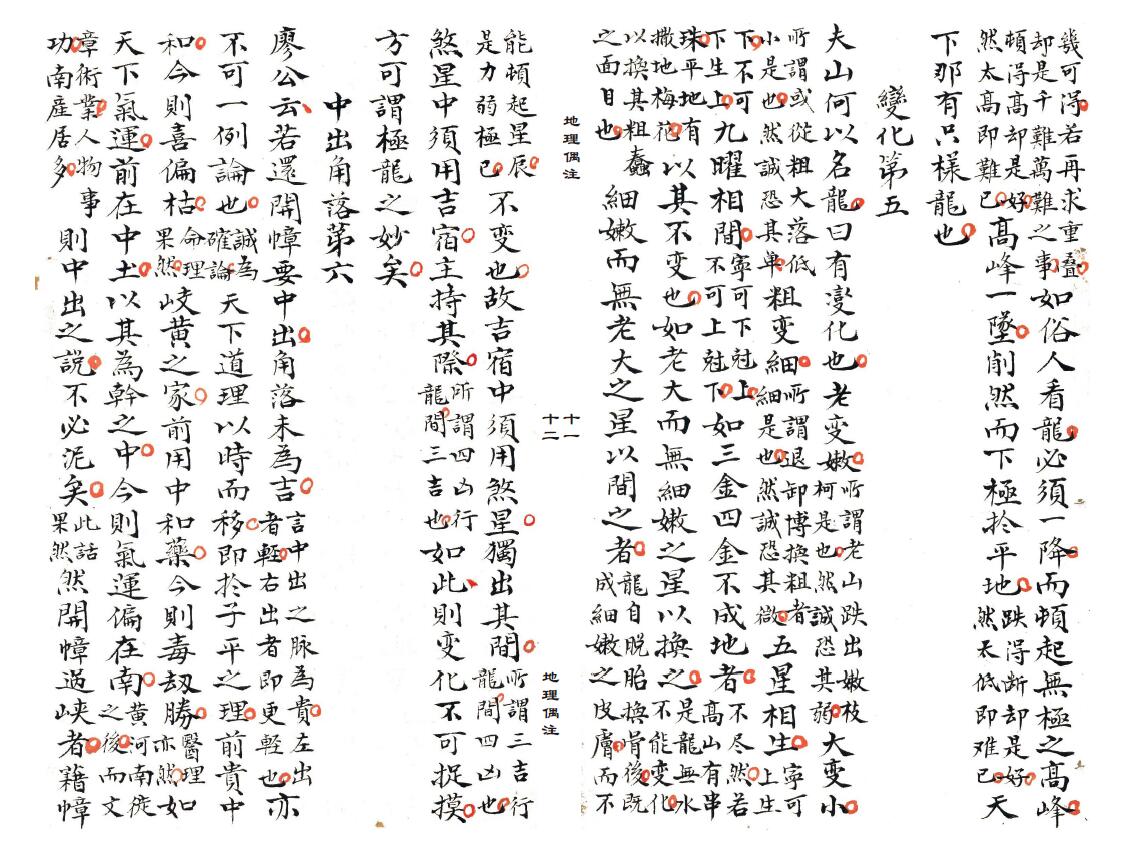 幾可得若再求重疊却是千難萬難之事如俗人看龍必須一降而頓起無極之高峰
頓得高却是好然太高即難已高峰一墜削然而下極於平地跌得斷却是好然太低即难已天
下那有只樣龍也
變化第五
夫山何以名龍曰有變化也老變嫩所謂老山跌出嫩枝柯是也然誠恐其弱大變小
所謂或從粗大落低小是也然誠恐其單粗變細所謂退卸博換粗者細是也然誠恐其微五星相生寧可上生
下不可下生上九曜相間寧可下尅上不可上尅下如三金四金不成地者不尽然若高山有串
珠平地有撒地梅花以其不變也如老大而無細嫩之星以換之是龍無水不能變化
以換其粗蠢之面目也細嫩而無老大之星以間之者龍自脱胎換骨後既成細嫩之皮膚而不
地理偶注
十一
十二
地理偶注
能頓起星辰是力弱極已不變也故吉宿中須用煞星獨出其間所謂三吉行龍間四凶也
煞星中須用吉宿主持其際所謂四凶行龍間三吉也如此則变化不可捉摸
方可謂極龍之妙矣
中出角落第六
廖公云若還開幛要中出角落未為吉言中出之脉為貴左出者輕右出者即更輕也亦
不可一例論也誠為確論天下道理以時而移即於子平之理前貴中
和今則喜偏枯命理果然岐黃之家前用中和藥今則毒劫勝醫理亦然如
天下氣運前在中土以其為幹之中今則氣運偏在南黄河南徙之後而文
章術業人物事功南産居多則中出之説不必泥矣此話果然然開幛過峽者藉幛